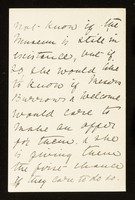 not know if the
Museum is still in
existence, but if
so, she would like
to know if Messrs
Burroughs & Wellcome
would care to
make an offer
for them. & she
is giving them
the first chance
if they care to do so.